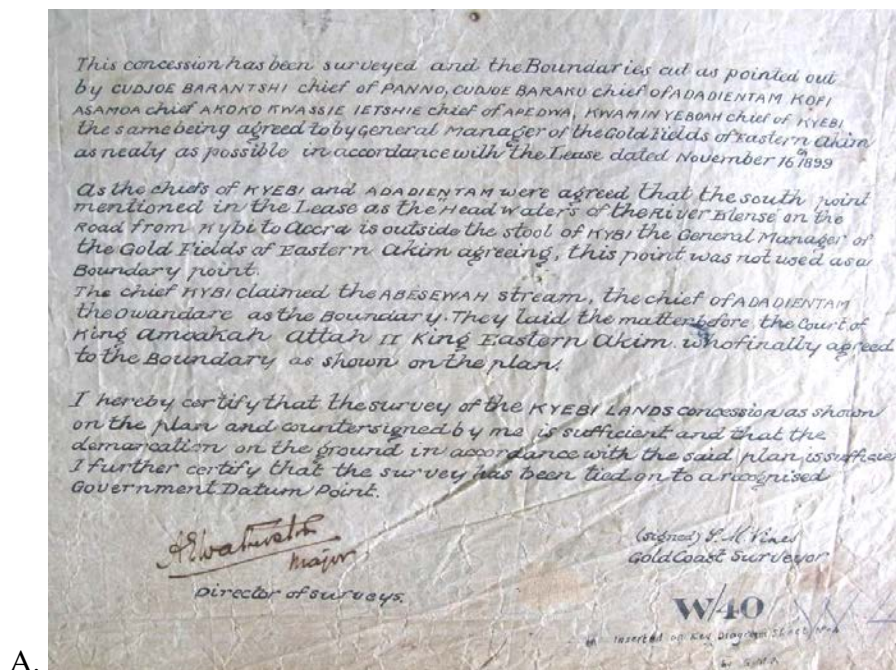 This concession has been surveyed and the Boundaries cut as pointed out
by CUDJOE BARANTSHI chief of PANNO, CUDJOE BARAKU chief of ADADIENTAM KOFI
ASAMOA chief AKOKO KWASSIE IETSHIE chief of APEDWA, KWAMIN YEBOAH chief of KYEBI
the same being agreed to by General Manager of the Gold Fields of Eastern Akim
as nealy as possible in accordance with the Lease dated November 16th 1899
As the chiefs of KYEBI and ADADIENTAM were agreed that the south point
mentioned in the Lease as the "Head Waters of the River Blense on the
Road from Kybi to Accra is outside the stool of KYBI the General Manager of
the Gold Fields of Eastern Akim agreeing, this point was not used as a
Boundary point.
The chief KYBI claimed the ABESEWAH stream, the chief of ADADIENTAM
the Owandare as the Boundary. They laid the matter before the Court of
King Amoakah Attah II King Eastern Akim. who finally agreed
to the Boundary as shown on the plan.
I hereby certify that the survey of the KYEBI LANDS concession as shown
on the plan and countersigned by me is sufficient and that the
demarcation on the ground in accordance with the said plan is sufficien
I further certify that the survey has been tied on to a recognised
Government Datum Point.
Major
Director of Surveys.
(signed) S. M. Vines
Gold Coast Surveyor
W/40
Inserted on Key Diagram Sheet
A.